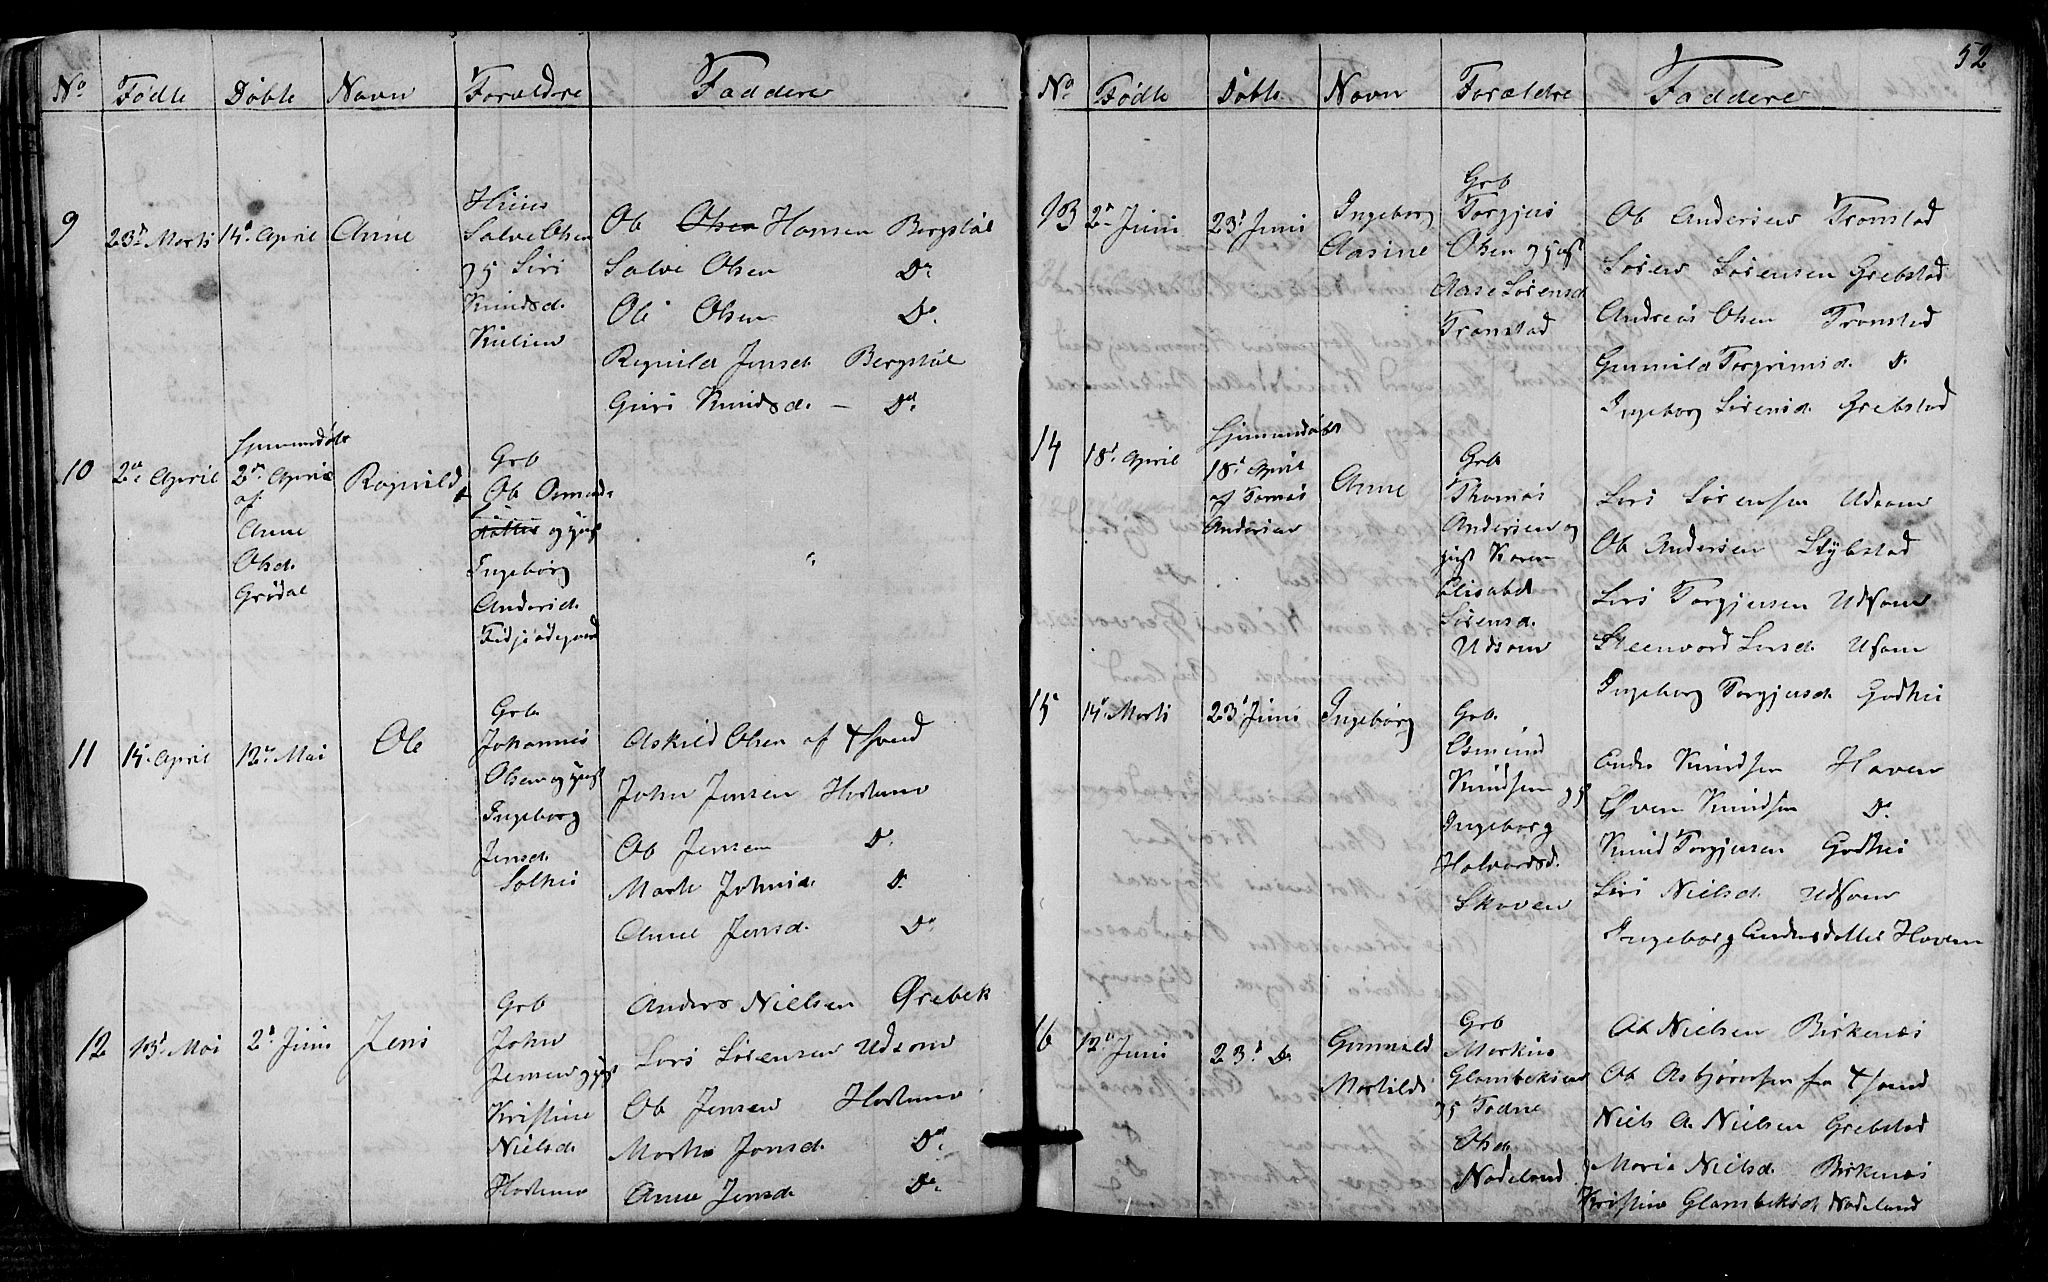 No Fødte Døbte Navn Forældre Faddere
9 23de Marts 14de April Anne
Huus
Salve Olsen
og Siri
Knudsd.
Ole Olsen Hansen Bergstøl
Salve Olsen Do
Ole Olsen Do
Ragnild Jensd. Bergstøl
Guri Knudsd. — Do
10 2den April
Hjemmedøbt
2den April
af
Anne
Olsd.
Grødal
Ragnild
Grb
Ole Osmunds
og Hust
Ingeborg
Andersd.
"
11 14de April 12te Mai Ole
Grb
Johannes
Olsen og Hust
Ingeborg
Jensd.
Solhei
Askild Olsen af Xsand
John Jensen
Ole Jensen Do
Marte Johnsd. Do
Anne Jensd. Do
12 13de Mai 2den Juni Jens
Grb
John
Jensen og Hust
Kristine
Nielsd.
Anders Nielsen Ørebek
Lars Sørensen Udsonn
Ole Jensen
Marthe Jonsd. Do
Anne Jensd. Do
52
No Fødte Døbte Navn Forældre Faddere
13 2den Juni 23de Juni
Ingeborg
Aasine
Grb
Torgjus
Olsen og Hust
Aase Sørensd.
Tronstad
Ole Andersen Tronstad
Søren Sørensen Grebstad
Andreas Olsen Tronstad
Gunnild Torgrimsd. Do
Ingeborg Sørensd. Grebstad
14 18de April
Hjemmedøbt
18de April
af Tomas
Andersen
Anne
Grb
Thomas
Andersen og
Hust Karen
Elisabet
Sørensd.
Udsonn
Lars Sørensen Udsonn
Ole Andersen Stybstad
Lars Torgjusen Udsonn
Larsd. Udsonn
Ingeborg Torgjusd. Godhei
15 14de Marts 23de Juni Ingeborg
Grb.
Osmund
Knudsen og
Ingeborg
Halvordsd.
Skaven
Anders Knudsen Haven
Øven Knudsen Do
Knud Torgjusen Godhei
Siri Nielsd. Udsonn
Ingeborg Andersdatter Haven
16 12te Juni 23de Do
Gunnild
Martilde
Grb
Markus
Glambeksen
og Todne
Olsd.
Nodeland
Ole Nielsen Birkenæs
Ole Asbjørnsen fra Xsand
Niels A. Nielsen Grebstad
Maria Nielsd. Birkenæs
Kristine Glambeksd. Nodeland